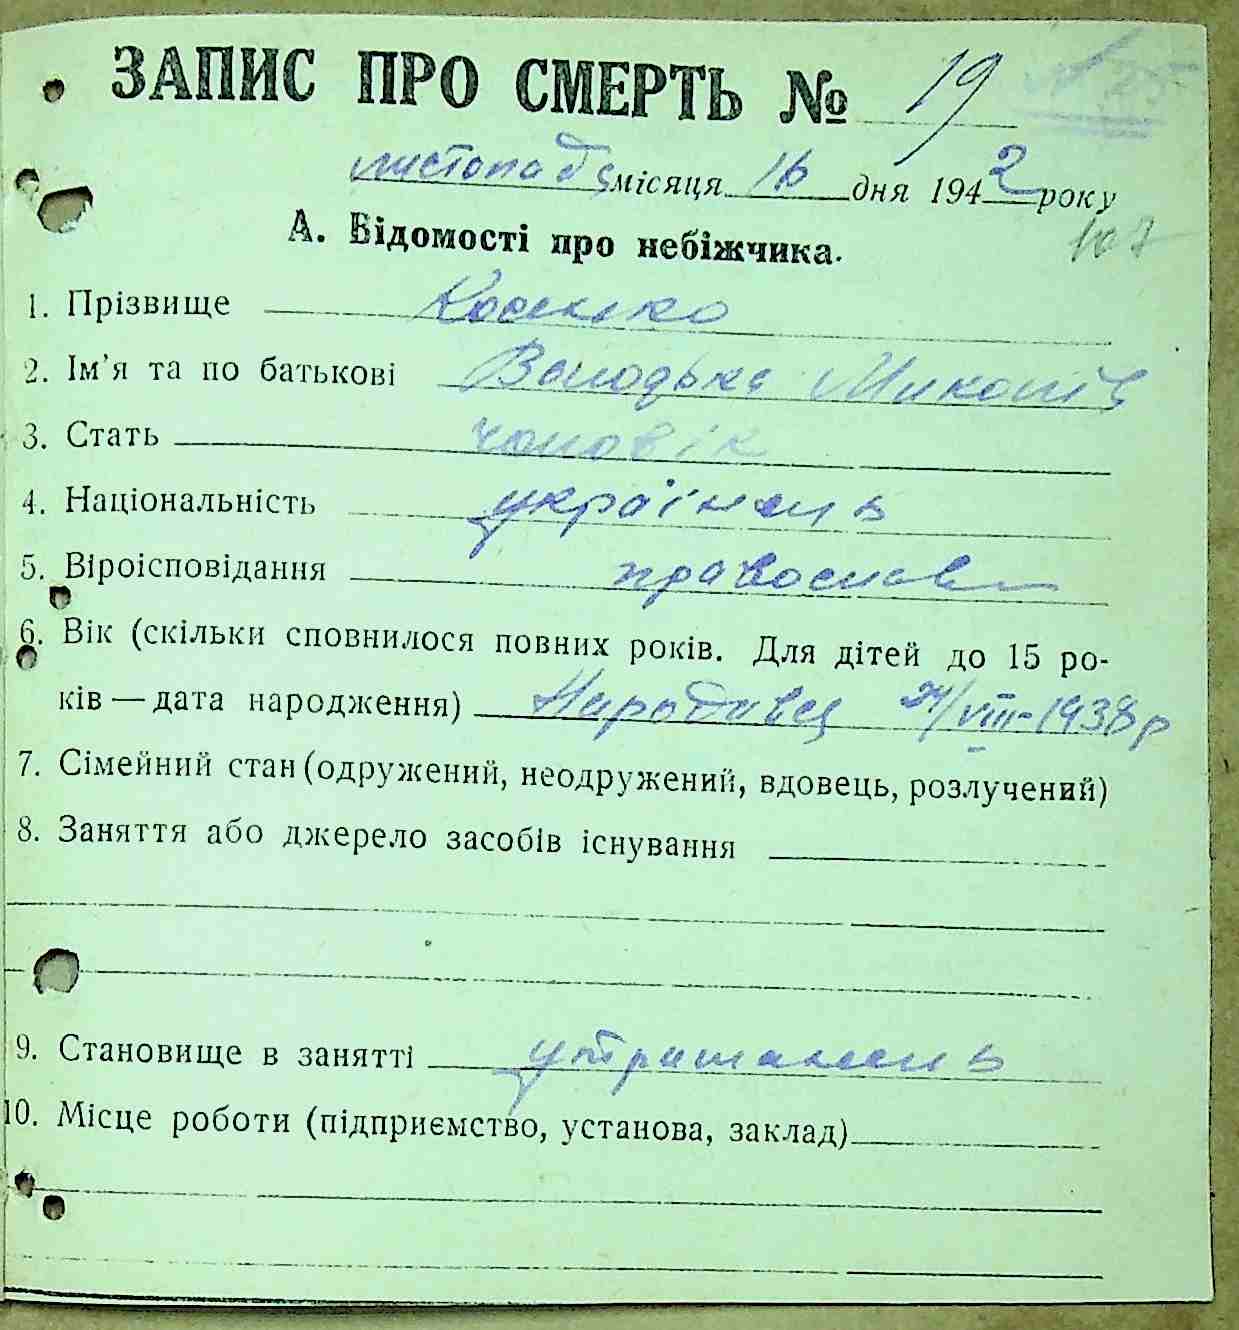 ЗАПИС ПРО СМЕРТЬ № 19
листопад місяця 16 дня 1942 року
107
А. Відомості про небіжчика.
1. Прізвище
2. Ім'я та по батькові Володька Миколів
3. Стать чоловік
4. Національність українець
5. Віроісповідання православн
6. Вік (скільки сповнилося повних років. Для дітей до 15 ро-
ків — дата народження) Народився 24/VIII-1938 р
7. Сімейний стан (одружений, неодружений, вдовець, розлучений)
8. Заняття або джерело засобів існування
9. Становище в занятті утриманець
10. Місце роботи (підприємство, установа, заклад)